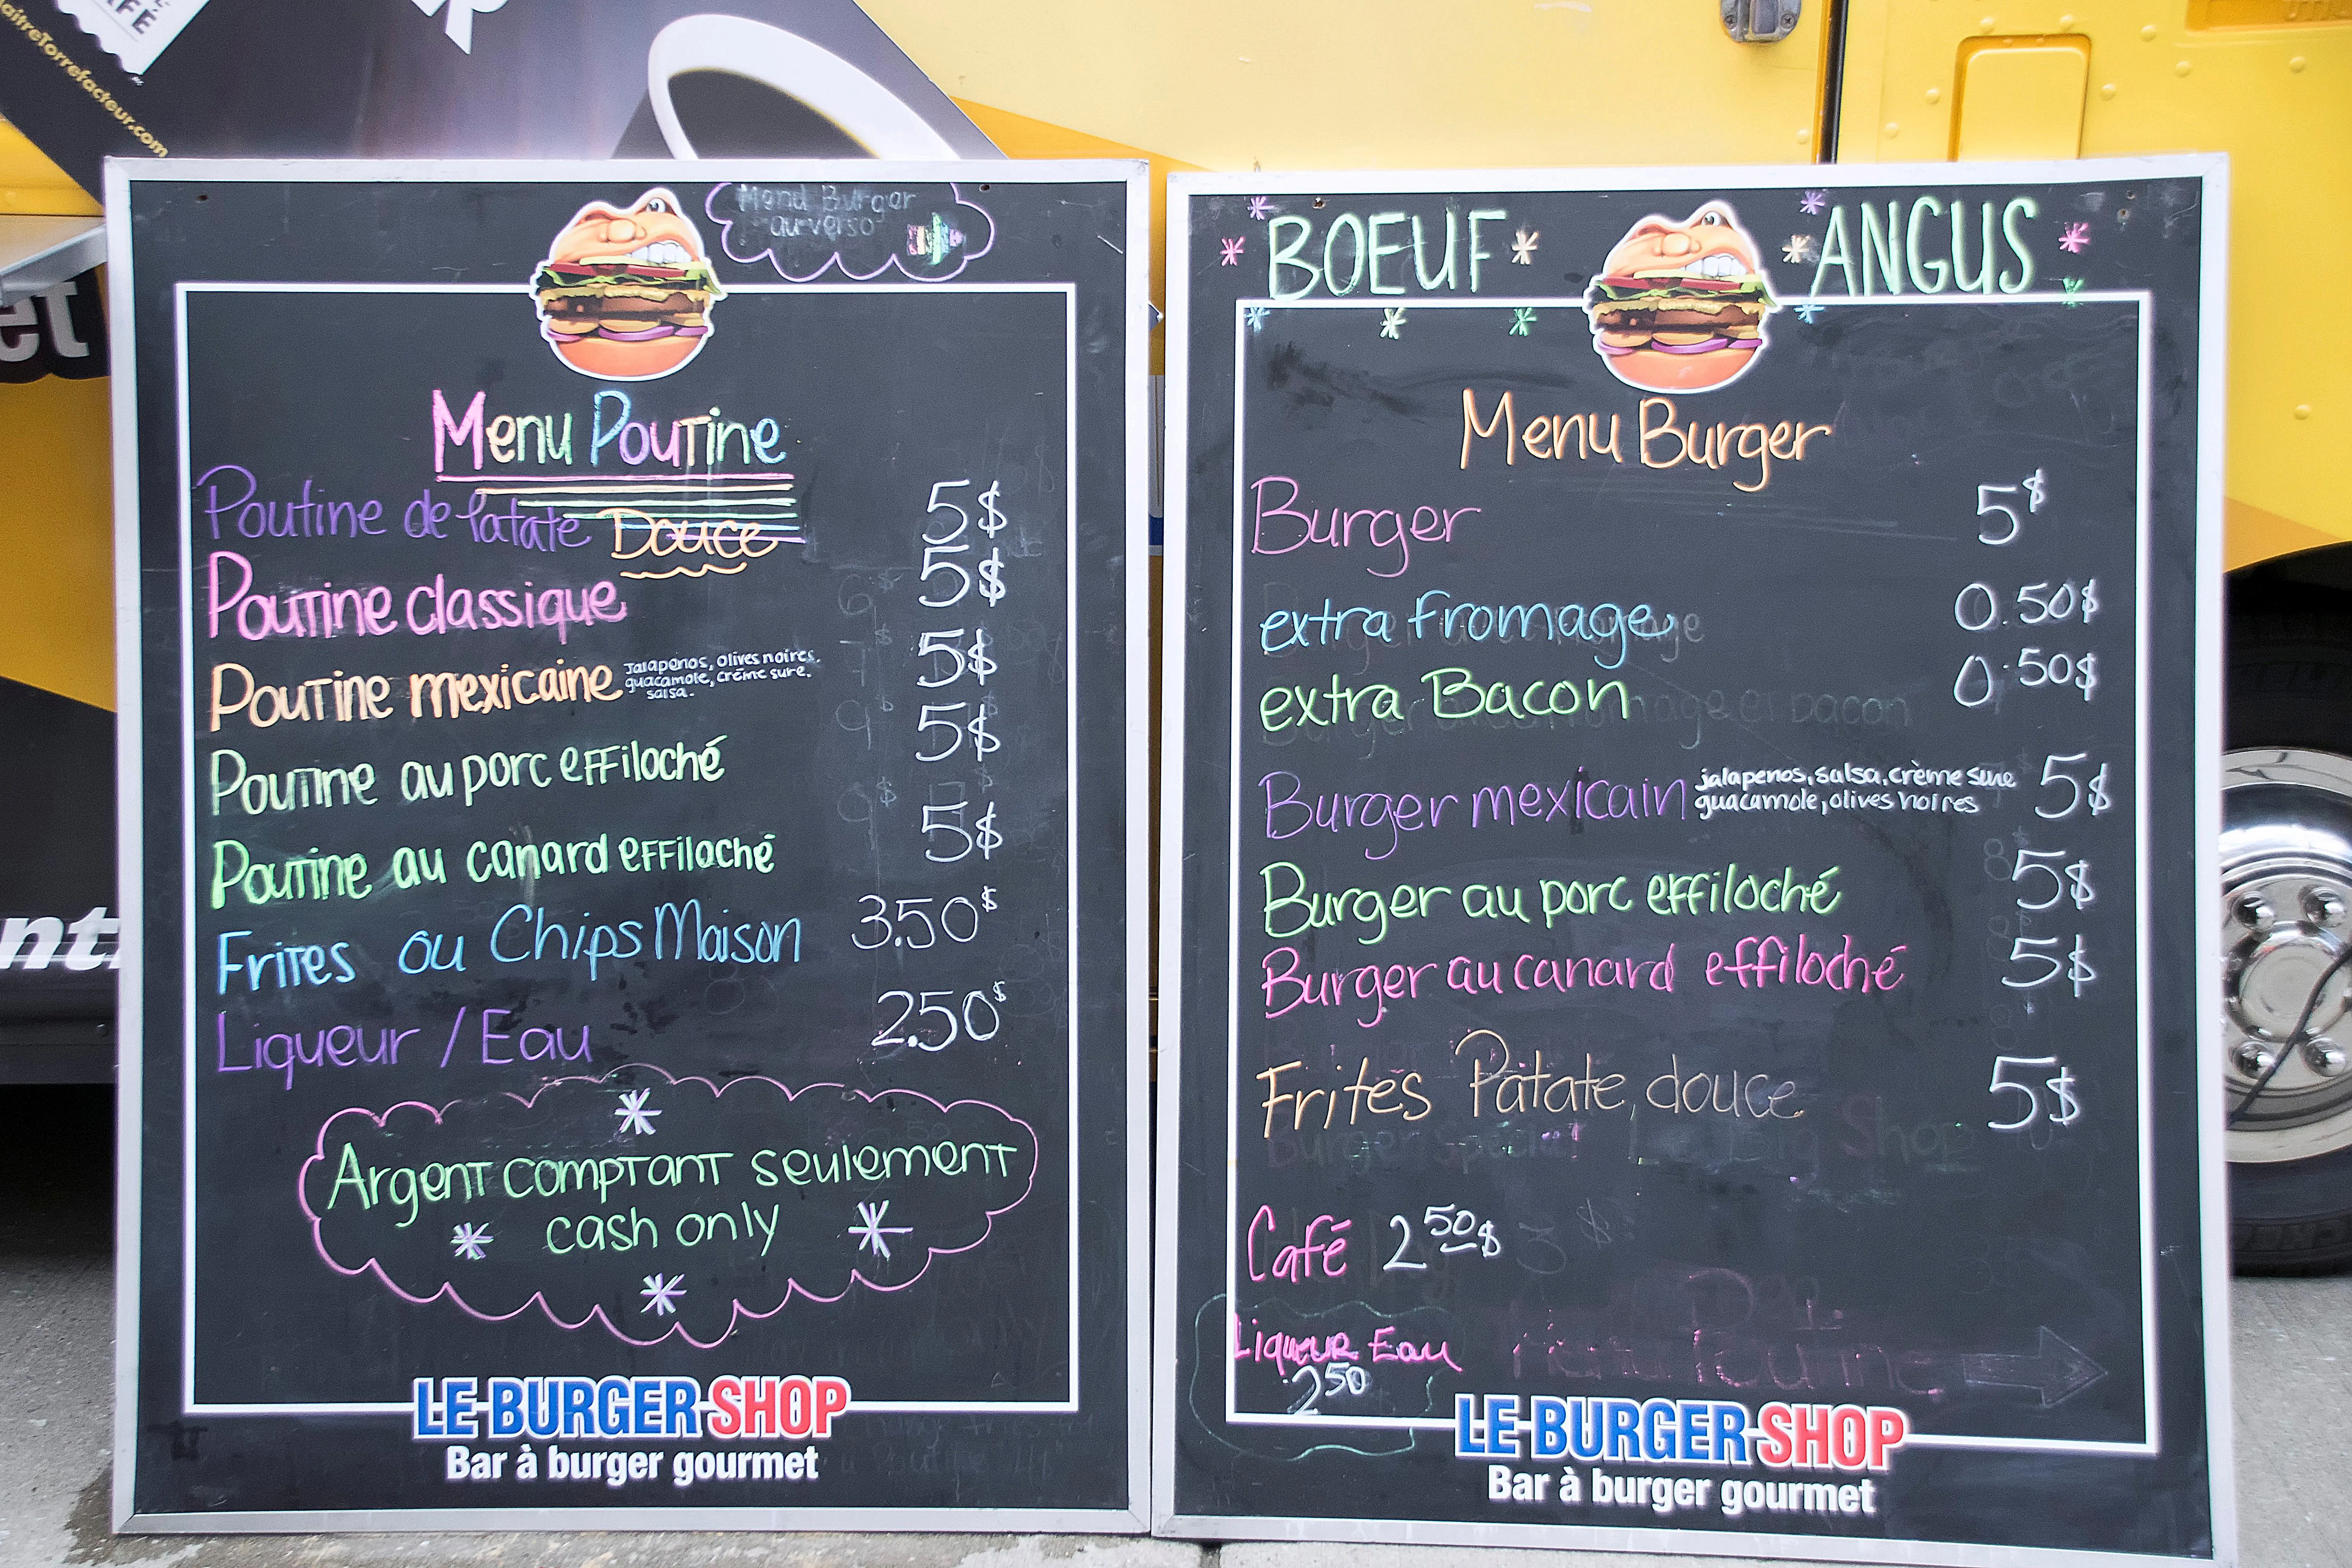 MaitreTorrefacteur.com
Menu Burger
au verso
Menu Poutine
Poutine de Patate Douce 5$
Poutine classique 5$
Poutine mexicaine jalapenos, olives noires, 5$
guacamole, crème sure,
salsa.
Poutine au porc effiloché 5$
Poutine au canard effiloché 5$
Frites ou Chips Maison 3.50$
Liqueur / Eau 2.50$
Argent comptant seulement
cash only
LE BURGER SHOP
Bar à burger gourmet
BOEUF ANGUS
Menu Burger
Burger 5$
extra fromage 0.50$
extra Bacon 0.50$
Burger mexicain jalapenos, salsa, crème sure 5$
guacamole, olives noires
Burger au porc effiloché 5$
Burger au canard effiloché 5$
Frites Patate douce 5$
Café 2 50$
Liqueur Eau
2 50
Menu Poutine
LE BURGER SHOP
Bar à burger gourmet